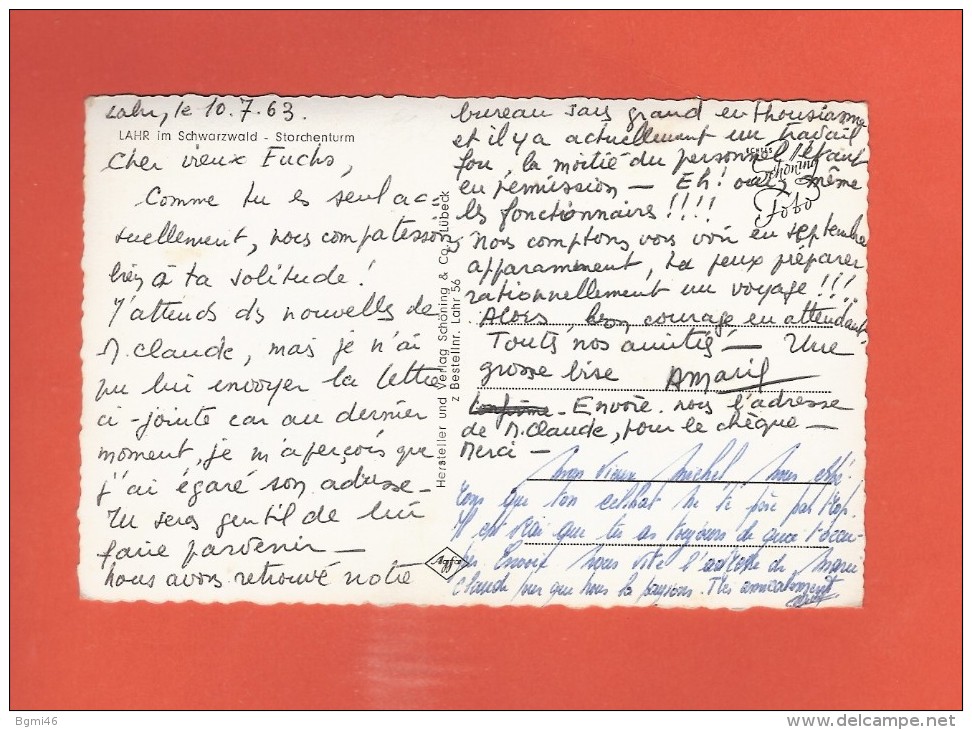 Lahr, le 10.7.63.
LAHR im Schwarzwald - Storchenturm
Cher vieux Fuchs,
Comme tu es seul ac-
tuellement, nous compatissons
bien à ta solitude!
J'attends des nouvelles de
M.Claude, mais je n'ai
pu lui envoyer la lettre
ci-jointe car au dernier
moment, je m'aperçois que
j'ai égaré son adresse -
Tu seras gentil de lui
faire parvenir -
Nous avons retrouvé notre
Hersteller und Verlag Schöning & Co., Lübeck
z Bestellnr. Lahr 56
Agfa
bureau sans grand enthousiasme
et il y a actuellement un travail
fou, la moitié du personnel étant
en permission - Eh! oui, même
les fonctionnaires!!!!
ECHTES
Schöning
Foto
Nous comptons vous voir en septembre
apparamment, tu peux préparer
rationnellement un voyage!!!
Alors, bon courage en attendant,
Toutes nos amitiés - Une
grosse bise
- Envoie-nous l'adresse
de M.Claude, pour le chèque -
Merci -
Mon Vieux Michel, nous espé-
rons que ton célibat ne te pèse pas trop.
Il est vrai que tu as toujours de quoi t'occu-
per. Envoie nous vite l'adresse de Marie
Claude pour que nous la payions. Très amicalement
Bgmi46
www.delcampe.net